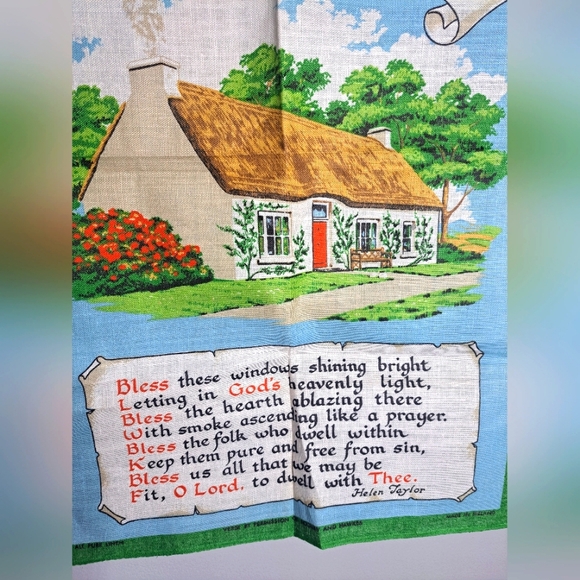 Bless these windows shining bright
Letting in God's heavenly light,
Bless the hearth ablazing there
With smoke ascending like a prayer.
Bless the folk who dwell within
Keep them pure and free from sin,
Bless us all that we may be
Fit, O Lord, to dwell with Thee.
Helen Taylor
PURE LINEN